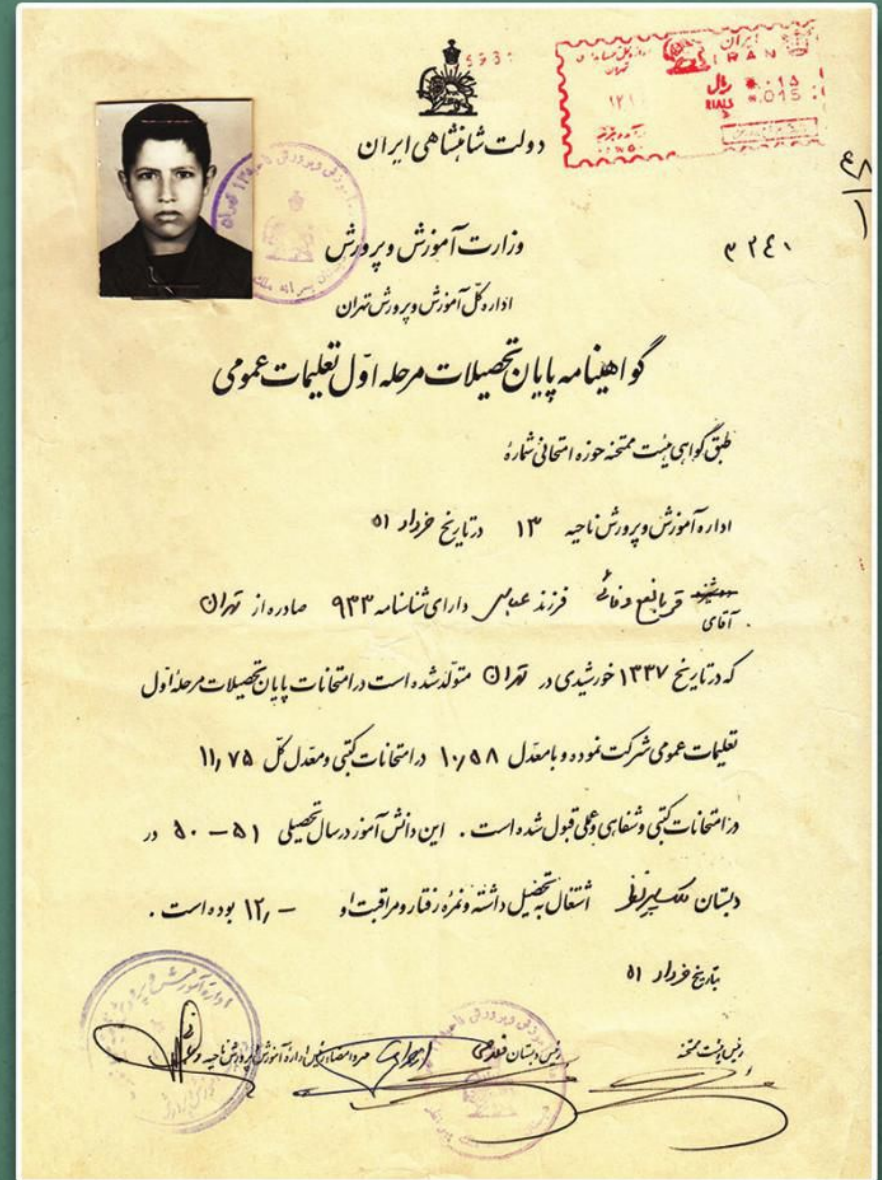 ایران
IRAN
ریال ۰۱۵
RIALS .015
دولت شاهنشاهی ایران
۴۸/۱
وزارت آموزش و پرورش
۳۲۴۱
اداره کل آموزش و پرورش تهران
گواهینامه پایان تحصیلات مرحله اول تعلیمات عمومی
طبق گواهی هیئت ممتحنه حوزه امتحانی شمارهٔ
اداره آموزش و پرورش ناحیه ۱۳ در تاریخ خرداد ۵۱
آقای فرزند عباس دارای شناسنامه ۹۳۳ صادره از تهران
که در تاریخ ۱۳۳۷ خورشیدی در تهران متولد شده است در امتحانات پایان تحصیلات مرحلهٔ اول
تعلیمات عمومی شرکت نموده و با معدّل ۱۰٫۵۸ در امتحانات کتبی و معدّل کلّ ۱۱٫۷۵
در امتحانات کتبی و شفاهی و عملی قبول شده است . این دانش آموز در سال تحصیلی ۵۱ – ۵۰ در
دبستان اشتغال به تحصیل داشته و نمره رفتار و مراقبت او – ۱۲٫ بوده است .
بتاریخ خرداد ۵۱
رئیس هیئت ممتحنه
رئیس دبستان
مهر و امضاء رئیس اداره آموزش و پرورش ناحیه